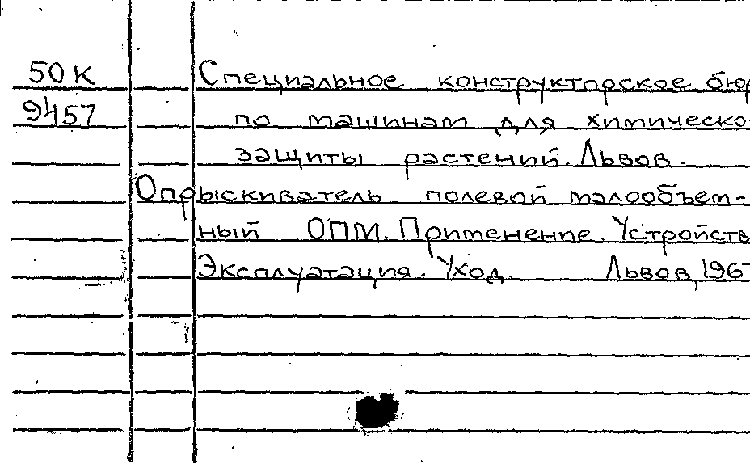 50К Специальное конструкторское бюр
9457 по машинам для химическо
защиты растений. Львов.
Опрыскиватель полевой малообъем-
ный ОПМ. Применение. Устройств
Эксплуатация. Уход. Львов, 196